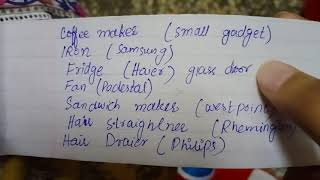 Coffee maker (small gadget)
IRon (Samsung)
Fridge (Haier) glass door
Fan (Padestal)
Sandwich maker (westpoint)
Hair Straightner (Rhemington)
Hair Draier (Philips)